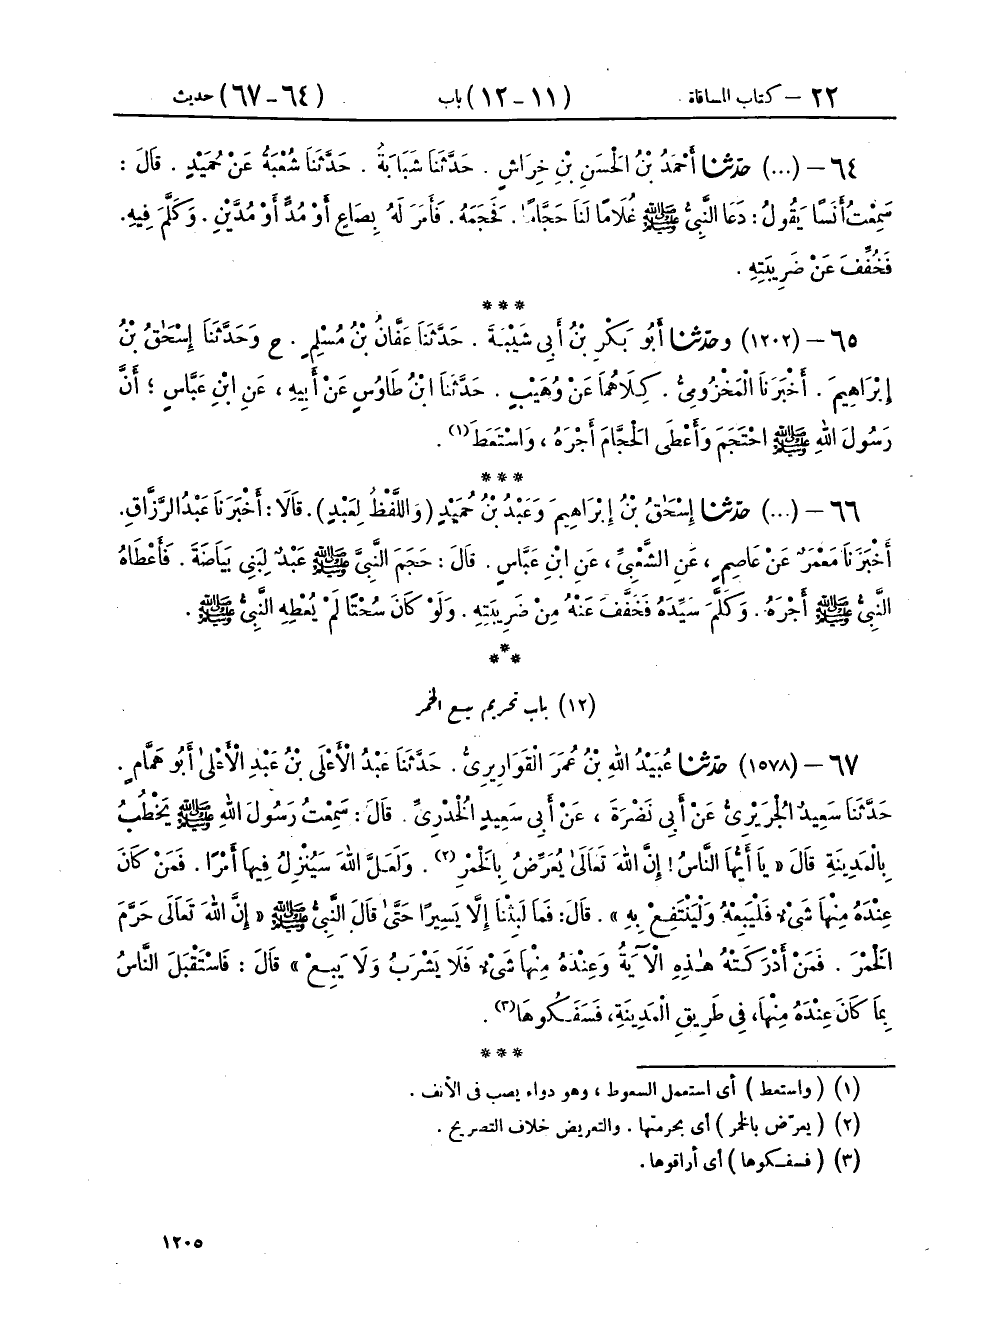 ٢٢ – كتاب المساقاة (١١-١٢) باب (٦٤-٦٧) حديث
٦٤ – (...) حدّثنا أَحْمَدُ بْنُ الْحَسَنِ بْنِ خِرَاشٍ . حَدَّثَنَا شَبَابَةُ . حَدَّثَنَا شُعْبَةُ عَنْ حُمَيْدٍ . قَالَ :
سَمِعْتُ أَنَسًا يَقُولُ : دَعَا النَّبِىُّ ﷺ غُلَامًا لَنَا حَجَّامًا . فَحَجَمَهُ . فَأَمَرَ لَهُ بِصَاعٍ أَوْ مُدٍّ أَوْ مُدَّيْنِ . وَكَلَّمَ فِيهِ .
فَخُفِّفَ عَنْ ضَرِيبَتِهِ .
***
٦٥ – (١٢٠٢) وحدّثنا أَبُو بَكْرِ بْنُ أَبِى شَيْبَةَ . حَدَّثَنَا عَفَّانُ بْنُ مُسْلِمٍ . ح وَحَدَّثَنَا إِسْحَٰقُ بْنُ
إِبْرَاهِيمَ . أَخْبَرَنَا الْمَخْزُومِىُّ . كِلَاهُمَا عَنْ وُهَيْبٍ . حَدَّثَنَا ابْنُ طَاوُسٍ عَنْ أَبِيهِ ، عَنِ ابْنِ عَبَّاسٍ ؛ أَنَّ
رَسُولَ اللهِ ﷺ احْتَجَمَ وَأَعْطَى الْحَجَّامَ أَجْرَهُ ، وَاسْتَعَطَ(١) .
***
٦٦ – (...) حدّثنا إِسْحَٰقُ بْنُ إِبْرَاهِيمَ وَعَبْدُ بْنُ حُمَيْدٍ (وَاللَّفْظُ لِعَبْدٍ) . قَالَا : أَخْبَرَنَا عَبْدُ الرَّزَّاقِ .
أَخْبَرَنَا مَعْمَرٌ عَنْ عَاصِمٍ ، عَنِ الشَّعْبِىِّ ، عَنِ ابْنِ عَبَّاسٍ . قَالَ : حَجَمَ النَّبِىَّ ﷺ عَبْدٌ لِبَنِى بَيَاضَةَ . فَأَعْطَاهُ
النَّبِىُّ ﷺ أَجْرَهُ . وَكَلَّمَ سَيِّدَهُ فَخَفَّفَ عَنْهُ مِنْ ضَرِيبَتِهِ . وَلَوْ كَانَ سُحْتًا لَمْ يُعْطِهِ النَّبِىُّ ﷺ .
***
(١٢) باب تحريم بيع الخمر
٦٧ – (١٥٧٨) حدّثنا عُبَيْدُ اللهِ بْنُ عُمَرَ الْقَوَارِيرِىُّ . حَدَّثَنَا عَبْدُ الْأَعْلَى بْنُ عَبْدِ الْأَعْلَى أَبُو هَمَّامٍ .
حَدَّثَنَا سَعِيدٌ الْجُرَيْرِىُّ عَنْ أَبِى نَضْرَةَ ، عَنْ أَبِى سَعِيدٍ الْخُدْرِىِّ . قَالَ : سَمِعْتُ رَسُولَ اللهِ ﷺ يَخْطُبُ
بِالْمَدِينَةِ قَالَ « يَا أَيُّهَا النَّاسُ ! إِنَّ اللهَ تَعَالَىٰ يُعَرِّضُ بِالْخَمْرِ(٢) . وَلَعَلَّ اللهَ سَيُنْزِلُ فِيهَا أَمْرًا . فَمَنْ كَانَ
عِنْدَهُ مِنْهَا شَىْءٌ فَلْيَبِعْهُ وَلْيَنْتَفِعْ بِهِ » . قَالَ : فَمَا لَبِثْنَا إِلَّا يَسِيرًا حَتَّىٰ قَالَ النَّبِىُّ ﷺ « إِنَّ اللهَ تَعَالَى حَرَّمَ
الْخَمْرَ . فَمَنْ أَدْرَكَتْهُ هَٰذِهِ الْآيَةُ وَعِنْدَهُ مِنْهَا شَىْءٌ فَلَا يَشْرَبْ وَلَا يَبِعْ » قَالَ : فَاسْتَقْبَلَ النَّاسُ
بِمَا كَانَ عِنْدَهُ مِنْهَا ، فِى طَرِيقِ الْمَدِينَةِ ، فَسَفَكُوهَا(٣) .
***
(١) ( واستعط ) أى استعمل السعوط ، وهو دواء يصب فى الأنف .
(٢) ( يعرّض بالخمر ) أى بحرمتها . والتعريض خلاف التصريح .
(٣) ( فسفكوها ) أى أراقوها .
١٢٠٥